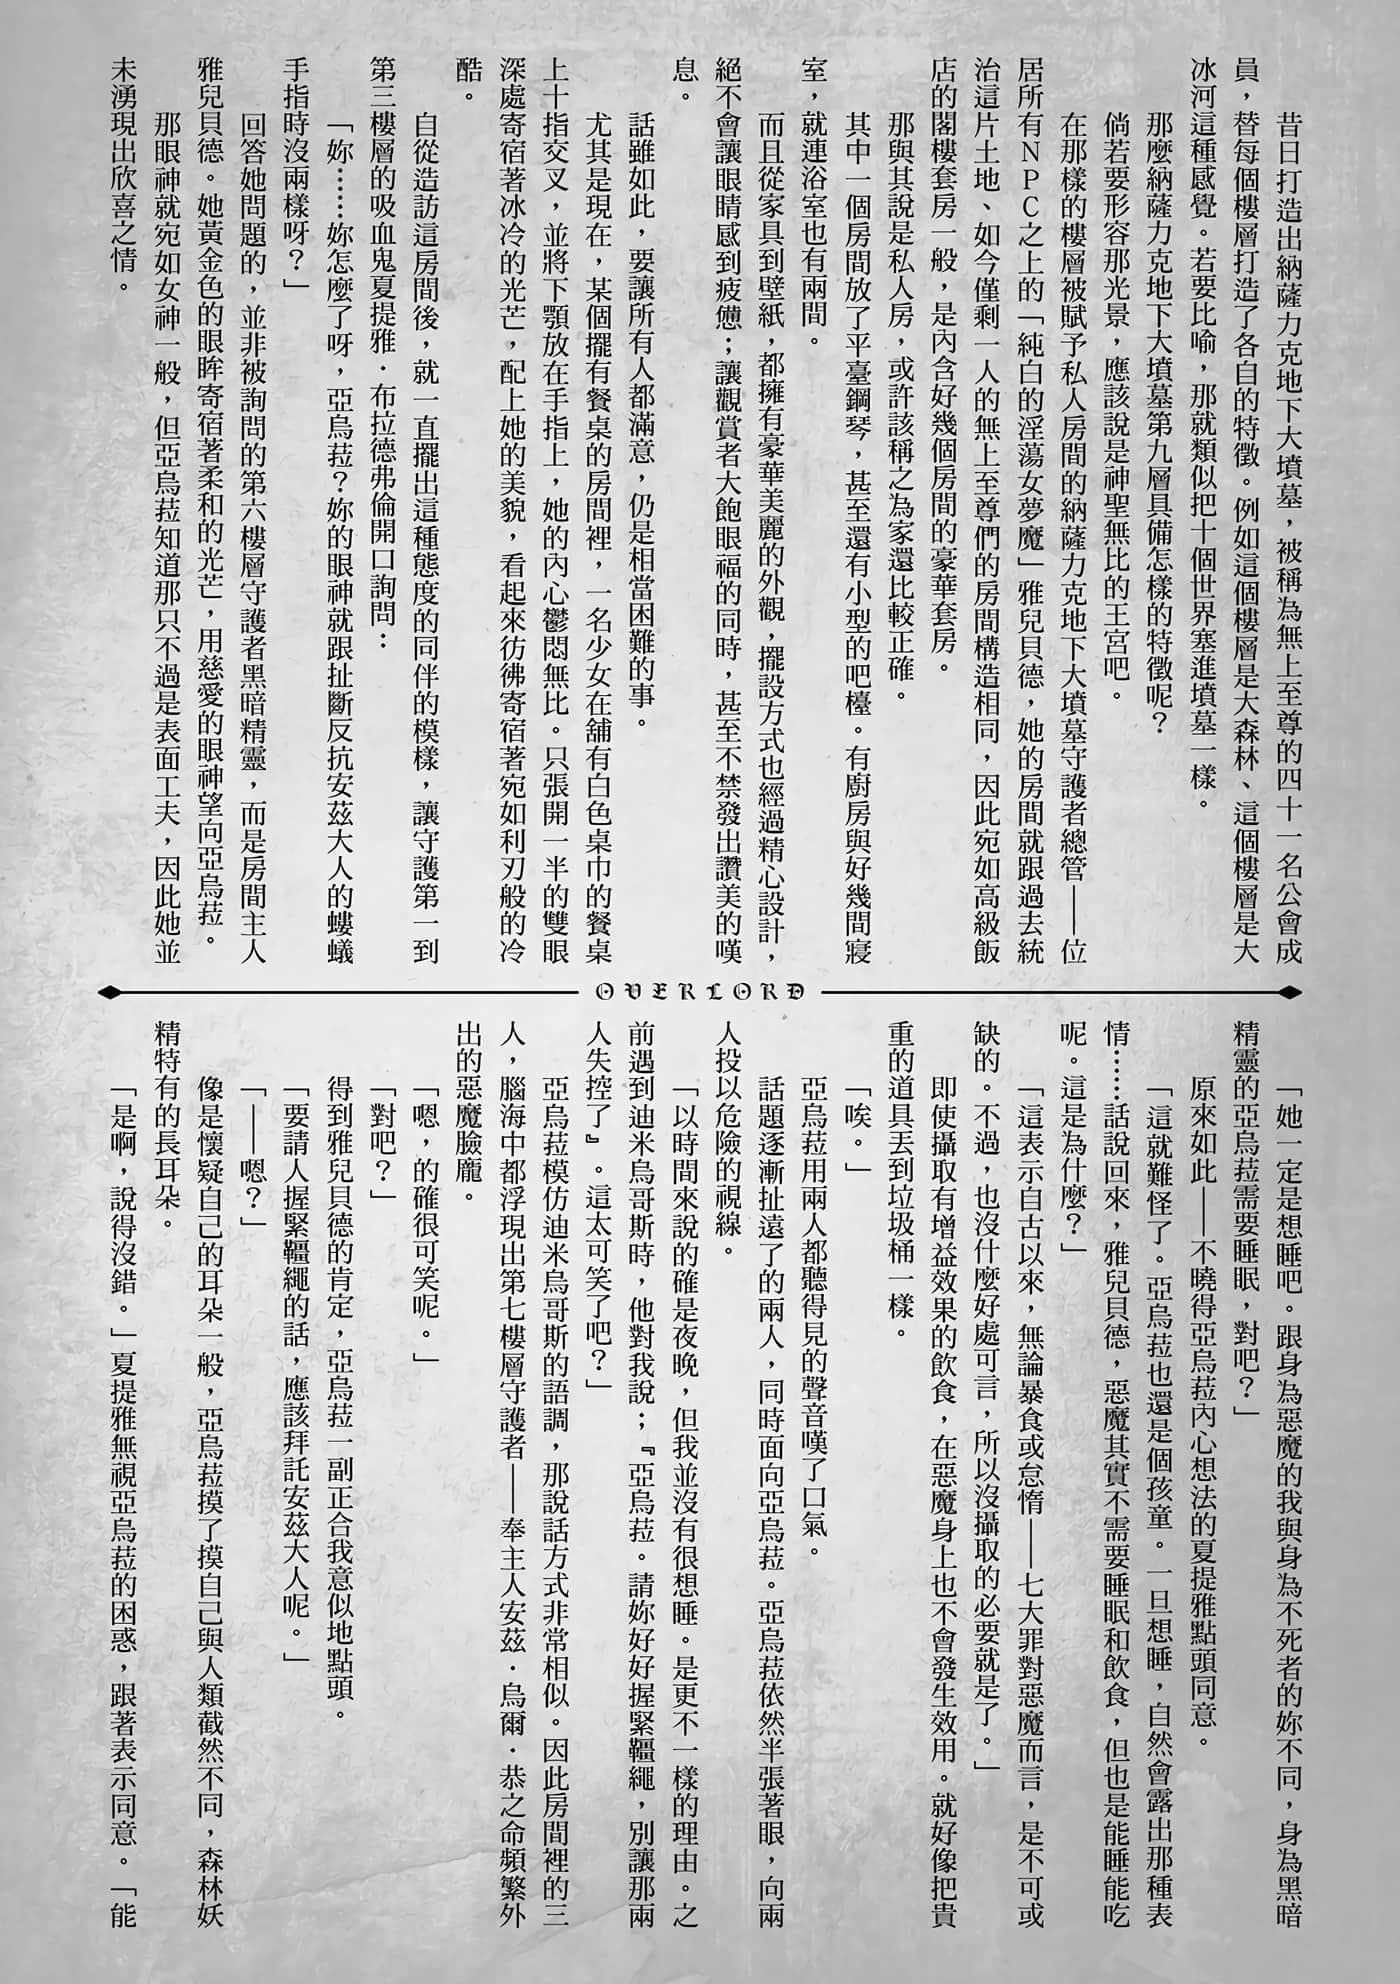 昔日打造出納薩力克地下大墳墓，被稱為無上至尊的四十一名公會成
員，替每個樓層打造了各自的特徵。例如這個樓層是大森林、這個樓層是大
冰河這種感覺。若要比喻，那就類似把十個世界塞進墳墓一樣。
那麼納薩力克地下大墳墓第九層具備怎樣的特徵呢？
倘若要形容那光景，應該說是神聖無比的王宮吧。
在那樣的樓層被賦予私人房間的納薩力克地下大墳墓守護者總管——位
居所有ＮＰＣ之上的「純白的淫蕩女夢魔」雅兒貝德，她的房間就跟過去統
治這片土地、如今僅剩一人的無上至尊們的房間構造相同，因此宛如高級飯
店的閣樓套房一般，是內含好幾個房間的豪華套房。
那與其說是私人房，或許該稱之為家還比較正確。
其中一個房間放了平臺鋼琴，甚至還有小型的吧檯。有廚房與好幾間寢
室，就連浴室也有兩間。
而且從家具到壁紙，都擁有豪華美麗的外觀，擺設方式也經過精心設計，
絕不會讓眼睛感到疲憊；讓觀賞者大飽眼福的同時，甚至不禁發出讚美的嘆
息。
話雖如此，要讓所有人都滿意，仍是相當困難的事。
尤其是現在，某個擺有餐桌的房間裡，一名少女在舖有白色桌巾的餐桌
上十指交叉，並將下顎放在手指上，她的內心鬱悶無比。只張開一半的雙眼
深處寄宿著冰冷的光芒，配上她的美貌，看起來彷彿寄宿著宛如利刃般的冷
酷。
自從造訪這房間後，就一直擺出這種態度的同伴的模樣，讓守護第一到
第三樓層的吸血鬼夏提雅．布拉德弗倫開口詢問：
「妳……妳怎麼了呀，亞烏菈？妳的眼神就跟扯斷反抗安茲大人的螻蟻
手指時沒兩樣呀？」
回答她問題的，並非被詢問的第六樓層守護者黑暗精靈，而是房間主人
雅兒貝德。她黃金色的眼眸寄宿著柔和的光芒，用慈愛的眼神望向亞烏菈。
那眼神就宛如女神一般，但亞烏菈知道那只不過是表面工夫，因此她並
未湧現出欣喜之情。
OVERLORD
「她一定是想睡吧。跟身為惡魔的我與身為不死者的妳不同，身為黑暗
精靈的亞烏菈需要睡眠，對吧？」
原來如此——不曉得亞烏菈內心想法的夏提雅點頭同意。
「這就難怪了。亞烏菈也還是個孩童。一旦想睡，自然會露出那種表
情……話說回來，雅兒貝德，惡魔其實不需要睡眠和飲食，但也是能睡能吃
呢。這是為什麼？」
「這表示自古以來，無論暴食或怠惰——七大罪對惡魔而言，是不可或
缺的。不過，也沒什麼好處可言，所以沒攝取的必要就是了。」
即使攝取有增益效果的飲食，在惡魔身上也不會發生效用。就好像把貴
重的道具丟到垃圾桶一樣。
「唉。」
亞烏菈用兩人都聽得見的聲音嘆了口氣。
話題逐漸扯遠了的兩人，同時面向亞烏菈。亞烏菈依然半張著眼，向兩
人投以危險的視線。
「以時間來說的確是夜晚，但我並沒有很想睡。是更不一樣的理由。之
前遇到迪米烏哥斯時，他對我說；『亞烏菈。請妳好好握緊韁繩，別讓那兩
人失控了』。這太可笑了吧？」
亞烏菈模仿迪米烏哥斯的語調，那說話方式非常相似。因此房間裡的三
人，腦海中都浮現出第七樓層守護者——奉主人安茲．烏爾．恭之命頻繁外
出的惡魔臉龐。
「嗯，的確很可笑呢。」
「對吧？」
得到雅兒貝德的肯定，亞烏菈一副正合我意似地點頭。
「要請人握緊韁繩的話，應該拜託安茲大人呢。」
「——嗯？」
像是懷疑自己的耳朵一般，亞烏菈摸了摸自己與人類截然不同，森林妖
精特有的長耳朵。
「是啊，說得沒錯。」夏提雅無視亞烏菈的困惑，跟著表示同意。「能